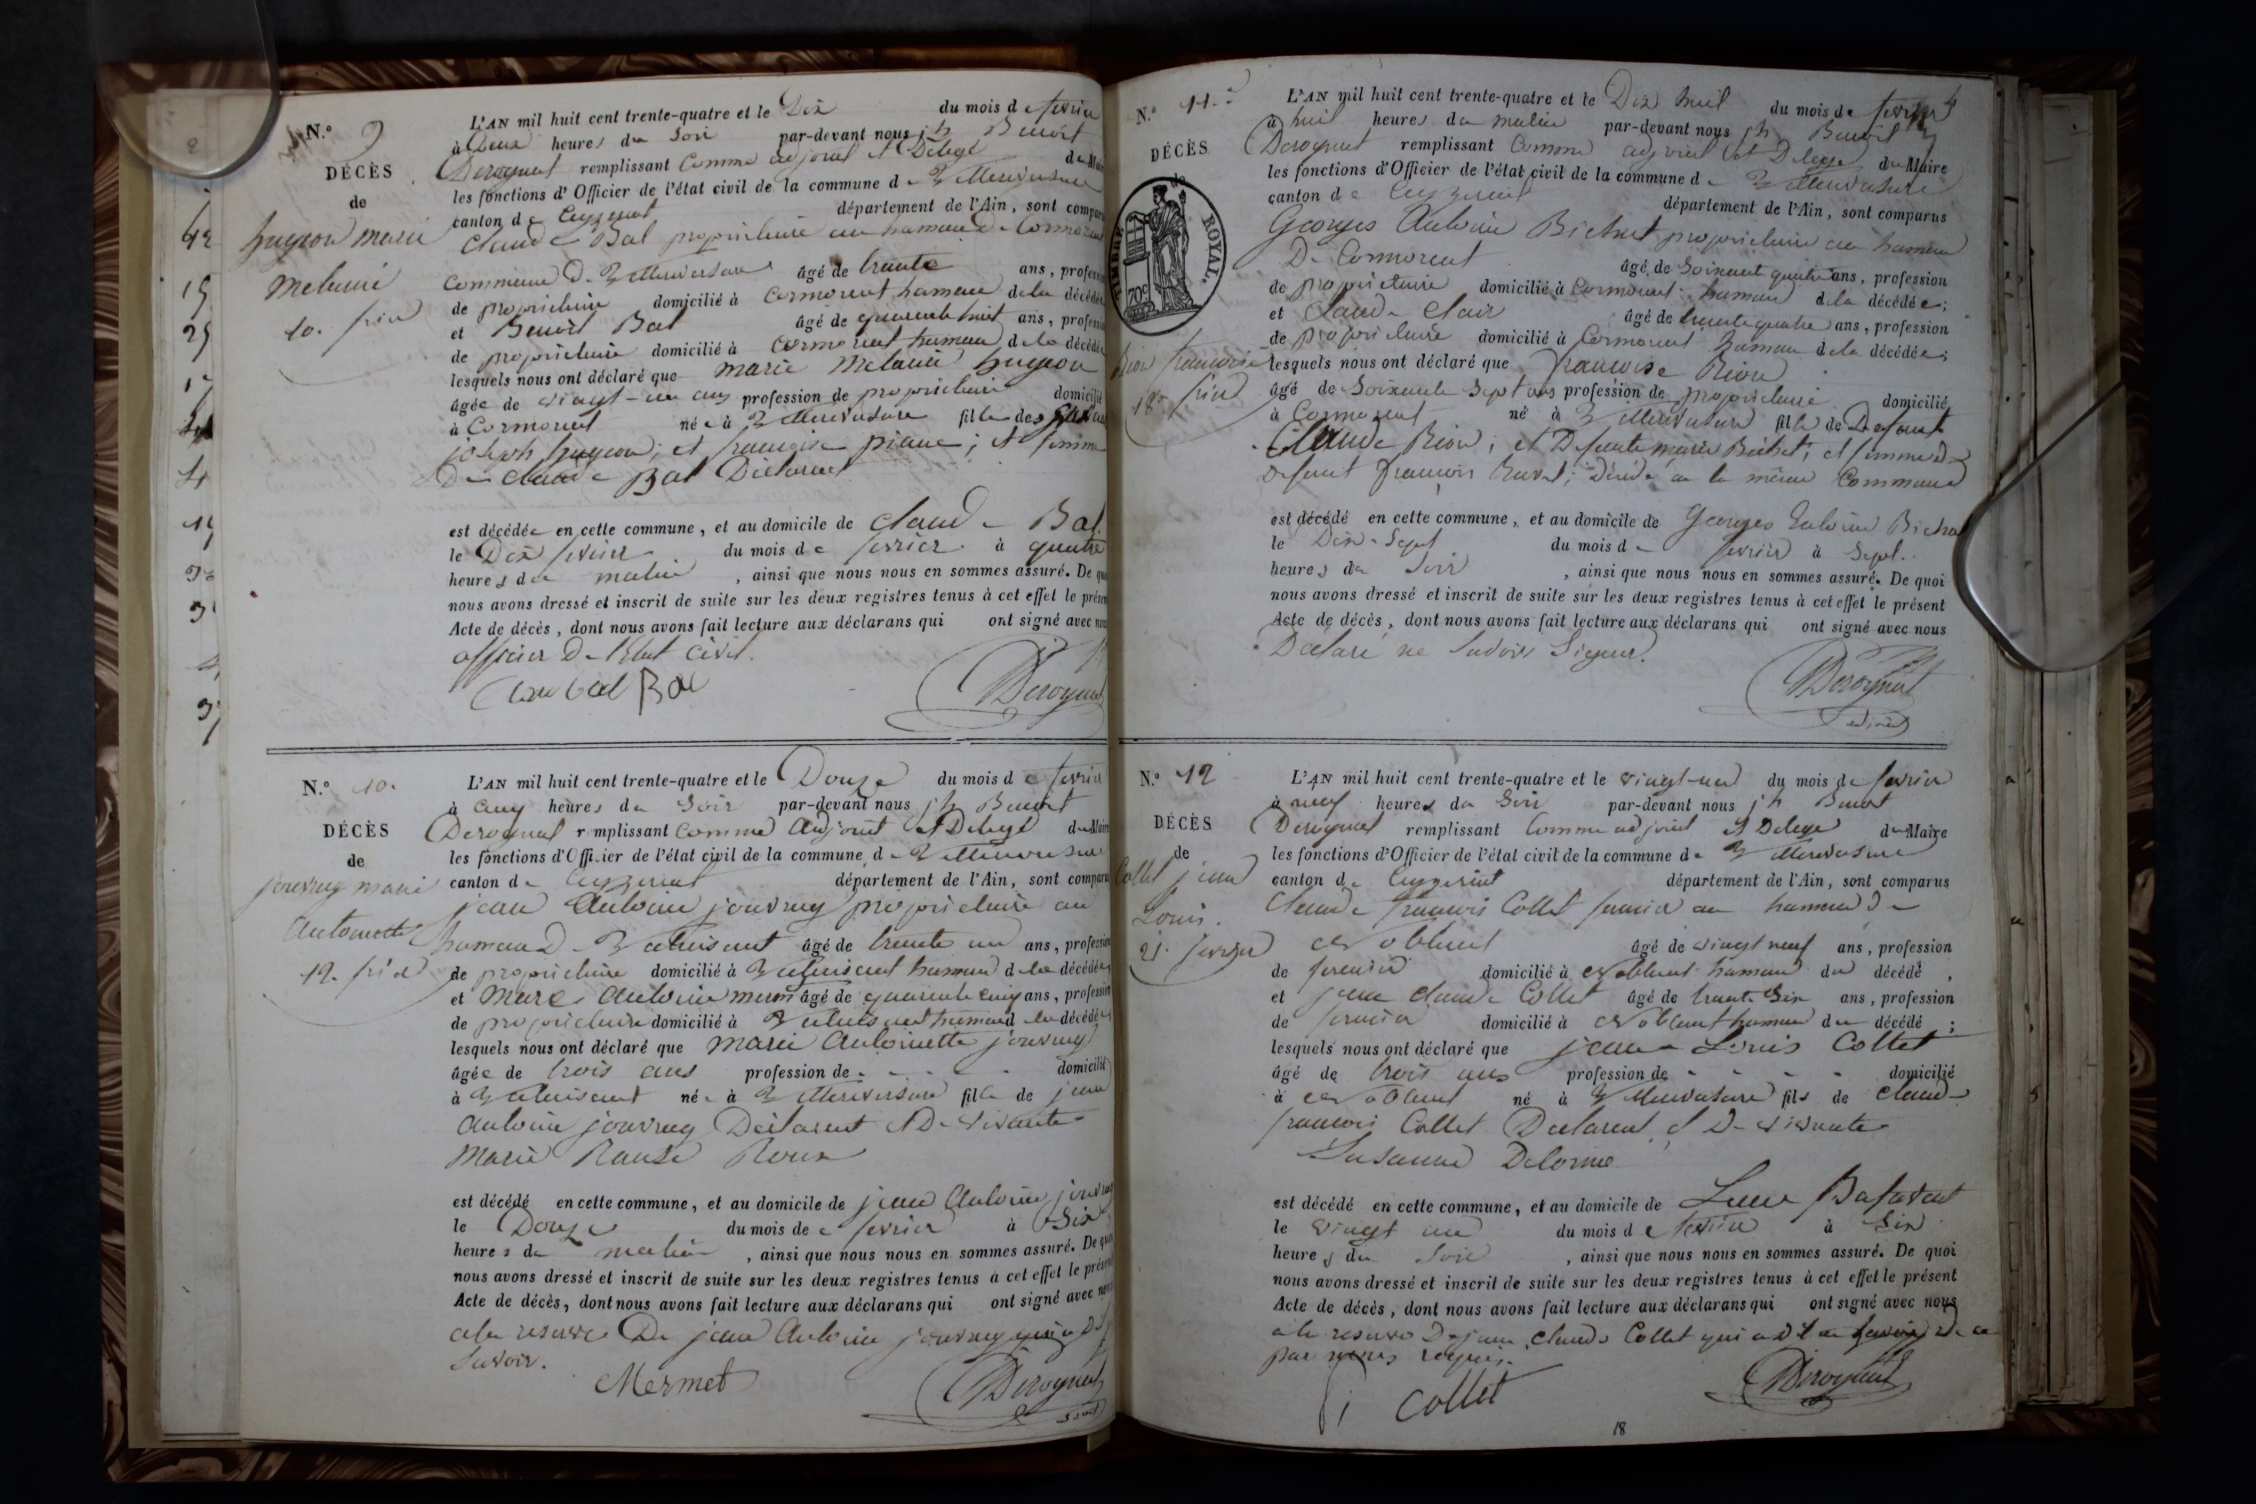 N.º 9
DÉCÈS
de
hugon marie
melanie
10. fév
L'AN mil huit cent trente-quatre et le Dix du mois de fevrier
à deux heures du Soir par-devant nous jh Benoit
Derognat remplissant Comme adjoint et Delegé du Maire
les fonctions d'Officier de l'état civil de la commune de Villereversure
canton de Ceyzeriat département de l'Ain, sont comparus
Claude Bal propriétaire au hameau de Cormorent
commune De Villereversure âgé de trente ans, profession
de propriétaire domicilié à Cormorent hameau de la décédée
et Benoit Bal âgé de quarente huit ans, profession
de propriétaire domicilié à Cormorent hameau de la décédée
lesquels nous ont déclaré que marie melanie hugon
âgée de vingt-un ans profession de propriétaire domicilié
à Cormorent née à Villereversure fille de
joseph hugon; et françoise piane; et femme
De Claude Bal Déclarent
est décédée en cette commune, et au domicile de Claude Bal.
le Dix fevrier du mois de fevrier à quatre
heures du matin, ainsi que nous nous en sommes assuré. De quoi
nous avons dressé et inscrit de suite sur les deux registres tenus à cet effet le présent
Acte de décès, dont nous avons fait lecture aux déclarans qui ont signé avec nous
officier De l'état Civil.
Bal Derognat
N.º 10.
DÉCÈS
de
jouvray marie
Antoinette
12. fév
L'AN mil huit cent trente-quatre et le Douze du mois de fevrier
à cinq heures du Soir par-devant nous jh Benoit
Derognat remplissant Comme Adjoint et Delegé du Maire
les fonctions d'Officier de l'état civil de la commune de Villereversure
canton de Ceyzeriat département de l'Ain, sont comparus
jean Antoine jouvray propriétaire au
hameau De âgé de trente un ans, profession
de propriétaire domicilié à hameau de la décédée
et Marc Antoine mermet âgé de quarente cinq ans, profession
de propriétaire domicilié à hameau de la décédée
lesquels nous ont déclaré que marie Antoinette jouvray
âgée de trois ans profession de - - - - domicilié
à née à Villereversure fille de jean
Antoine jouvray Déclarent et De vivante
Marie Roux
est décédé en cette commune, et au domicile de jean Antoine jouvray
le Douze du mois de fevrier à Six
heures du matin, ainsi que nous nous en sommes assuré. De quoi
nous avons dressé et inscrit de suite sur les deux registres tenus à cet effet le présent
Acte de décès, dont nous avons fait lecture aux déclarans qui ont signé avec nous
a la reserve De jean Antoine jouvray qui a
Savoir.
Mermet Derognat
N.º 11.
DÉCÈS
de
TIMBRE ROYAL.
70c
Rion françoise
18 fév
L'AN mil huit cent trente-quatre et le Dix huit du mois de fevrier
à huit heures du matin par-devant nous jh Benoit
Derognat remplissant Comme adjoint et Delegé du Maire
les fonctions d'Officier de l'état civil de la commune de Villereversure
canton de Ceyzeriat département de l'Ain, sont comparus
Georges Antoine Bichat propriétaire au hameau
De Cormorent âgé de Soixante quatre ans, profession
de propriétaire domicilié à Cormorent hameau de la décédée;
et Claude Clair âgé de trente quatre ans, profession
de propriétaire domicilié à Cormorent hameau de la décédée;
lesquels nous ont déclaré que françoise Rion
âgé de Soixante Sept ans profession de propriétaire domicilié
à Cormorent né à Villereversure fille de Défunt
Claude Rion; et Defunte marie Bichat; et femme de
Defunt françois Ravet; Décédé en la même Commune
est décédé en cette commune, et au domicile de Georges Antoine Bichat
le Dix-Sept du mois de fevrier à Sept.
heures du Soir, ainsi que nous nous en sommes assuré. De quoi
nous avons dressé et inscrit de suite sur les deux registres tenus à cet effet le présent
Acte de décès, dont nous avons fait lecture aux déclarans qui ont signé avec nous
Déclaré ne Savoir Signer.
Derognat
N.º 12
DÉCÈS
de
Collet jean
Louis.
21. fevrier
L'AN mil huit cent trente-quatre et le vingt-un du mois de fevrier
à neuf heures du Soir par-devant nous jh Benoit
Derognat remplissant Comme adjoint et Delegé du Maire
les fonctions d'Officier de l'état civil de la commune de Villereversure
canton de Ceyzeriat département de l'Ain, sont comparus
Claude françois Collet fermier au hameau de
Noblent âgé de vingt neuf ans, profession
de fermier domicilié à Noblent hameau du décédé,
et jean Claude Collet âgé de trente Six ans, profession
de fermier domicilié à Noblent hameau du décédé;
lesquels nous ont déclaré que jean Louis Collet
âgé de trois ans profession de - - - - domicilié
à Noblent né à Villereversure fils de Claude
françois Collet Declarent, et De vivante
Susanne Delorme
est décédé en cette commune, et au domicile de
le vingt un du mois de fevrier à Six
heures du Soir, ainsi que nous nous en sommes assuré. De quoi
nous avons dressé et inscrit de suite sur les deux registres tenus à cet effet le présent
Acte de décès, dont nous avons fait lecture aux déclarans qui ont signé avec nous
a la reserve De jean Claude Collet qui a dit ne Savoir de ce
par nous requis.
Collet Derognat
18